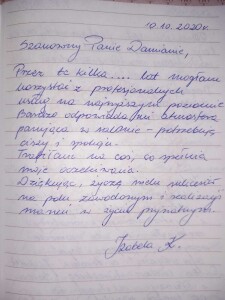 10.10.2020r.
Szanowny Panie Damianie,
Przez te kilka.... lat mogłam
korzystać z profesjonalnych
usług na najwyższym poziomie.
Bardzo odpowiada mi atmosfera
panująca w salonie - potrzebuję
ciszy i spokoju.
Trafiłam na coś, co spełnia
moje oczekiwania.
Dziękując, życzę wielu sukcesów
na polu zawodowym i realizacji
marzeń w życiu prywatnym.
Izabela K.